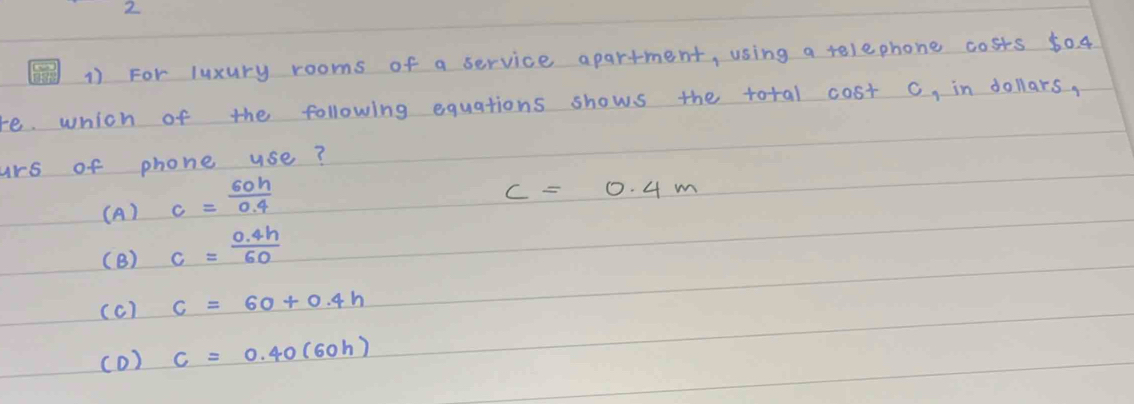 2
1) For luxury rooms of a service apartment, using a telephone costs $0.4
te. which of the following equations shows the total cost C, in dollars,
urs of phone use?
(A) c = 60h/0.4
C = 0.4 m
(B) C = 0.4h/60
(C) C = 60 + 0.4h
(D) C = 0.40(60h)